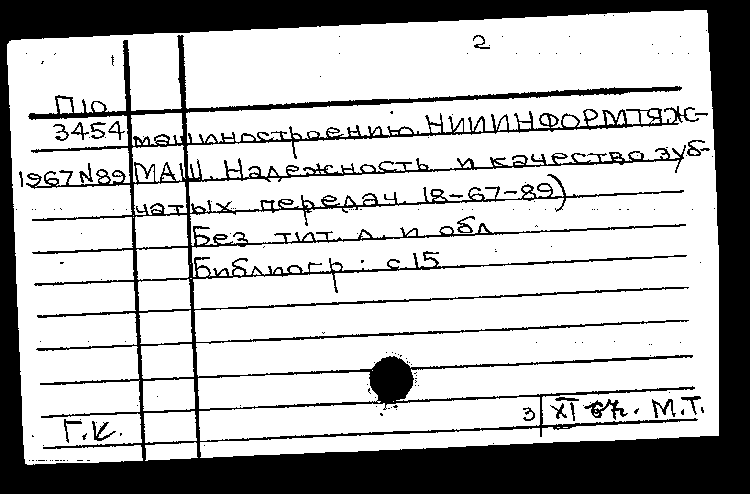 2
П10
3454 машиностроению. НИИИНФОРМТЯЖ-
1967 N89 МАШ. Надежность и качество зуб-
чатых передач. 18-67-89)
Без тит. л. и обл.
Библиогр: с. 15
3 XI 67г. М.Т.
Г.К.